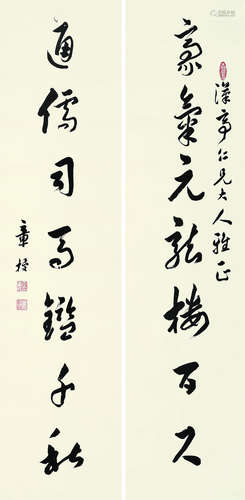 漢亭仁兄大人雅正
豪氣元龍樓百尺
通儒司馬鑑千秋
章梫